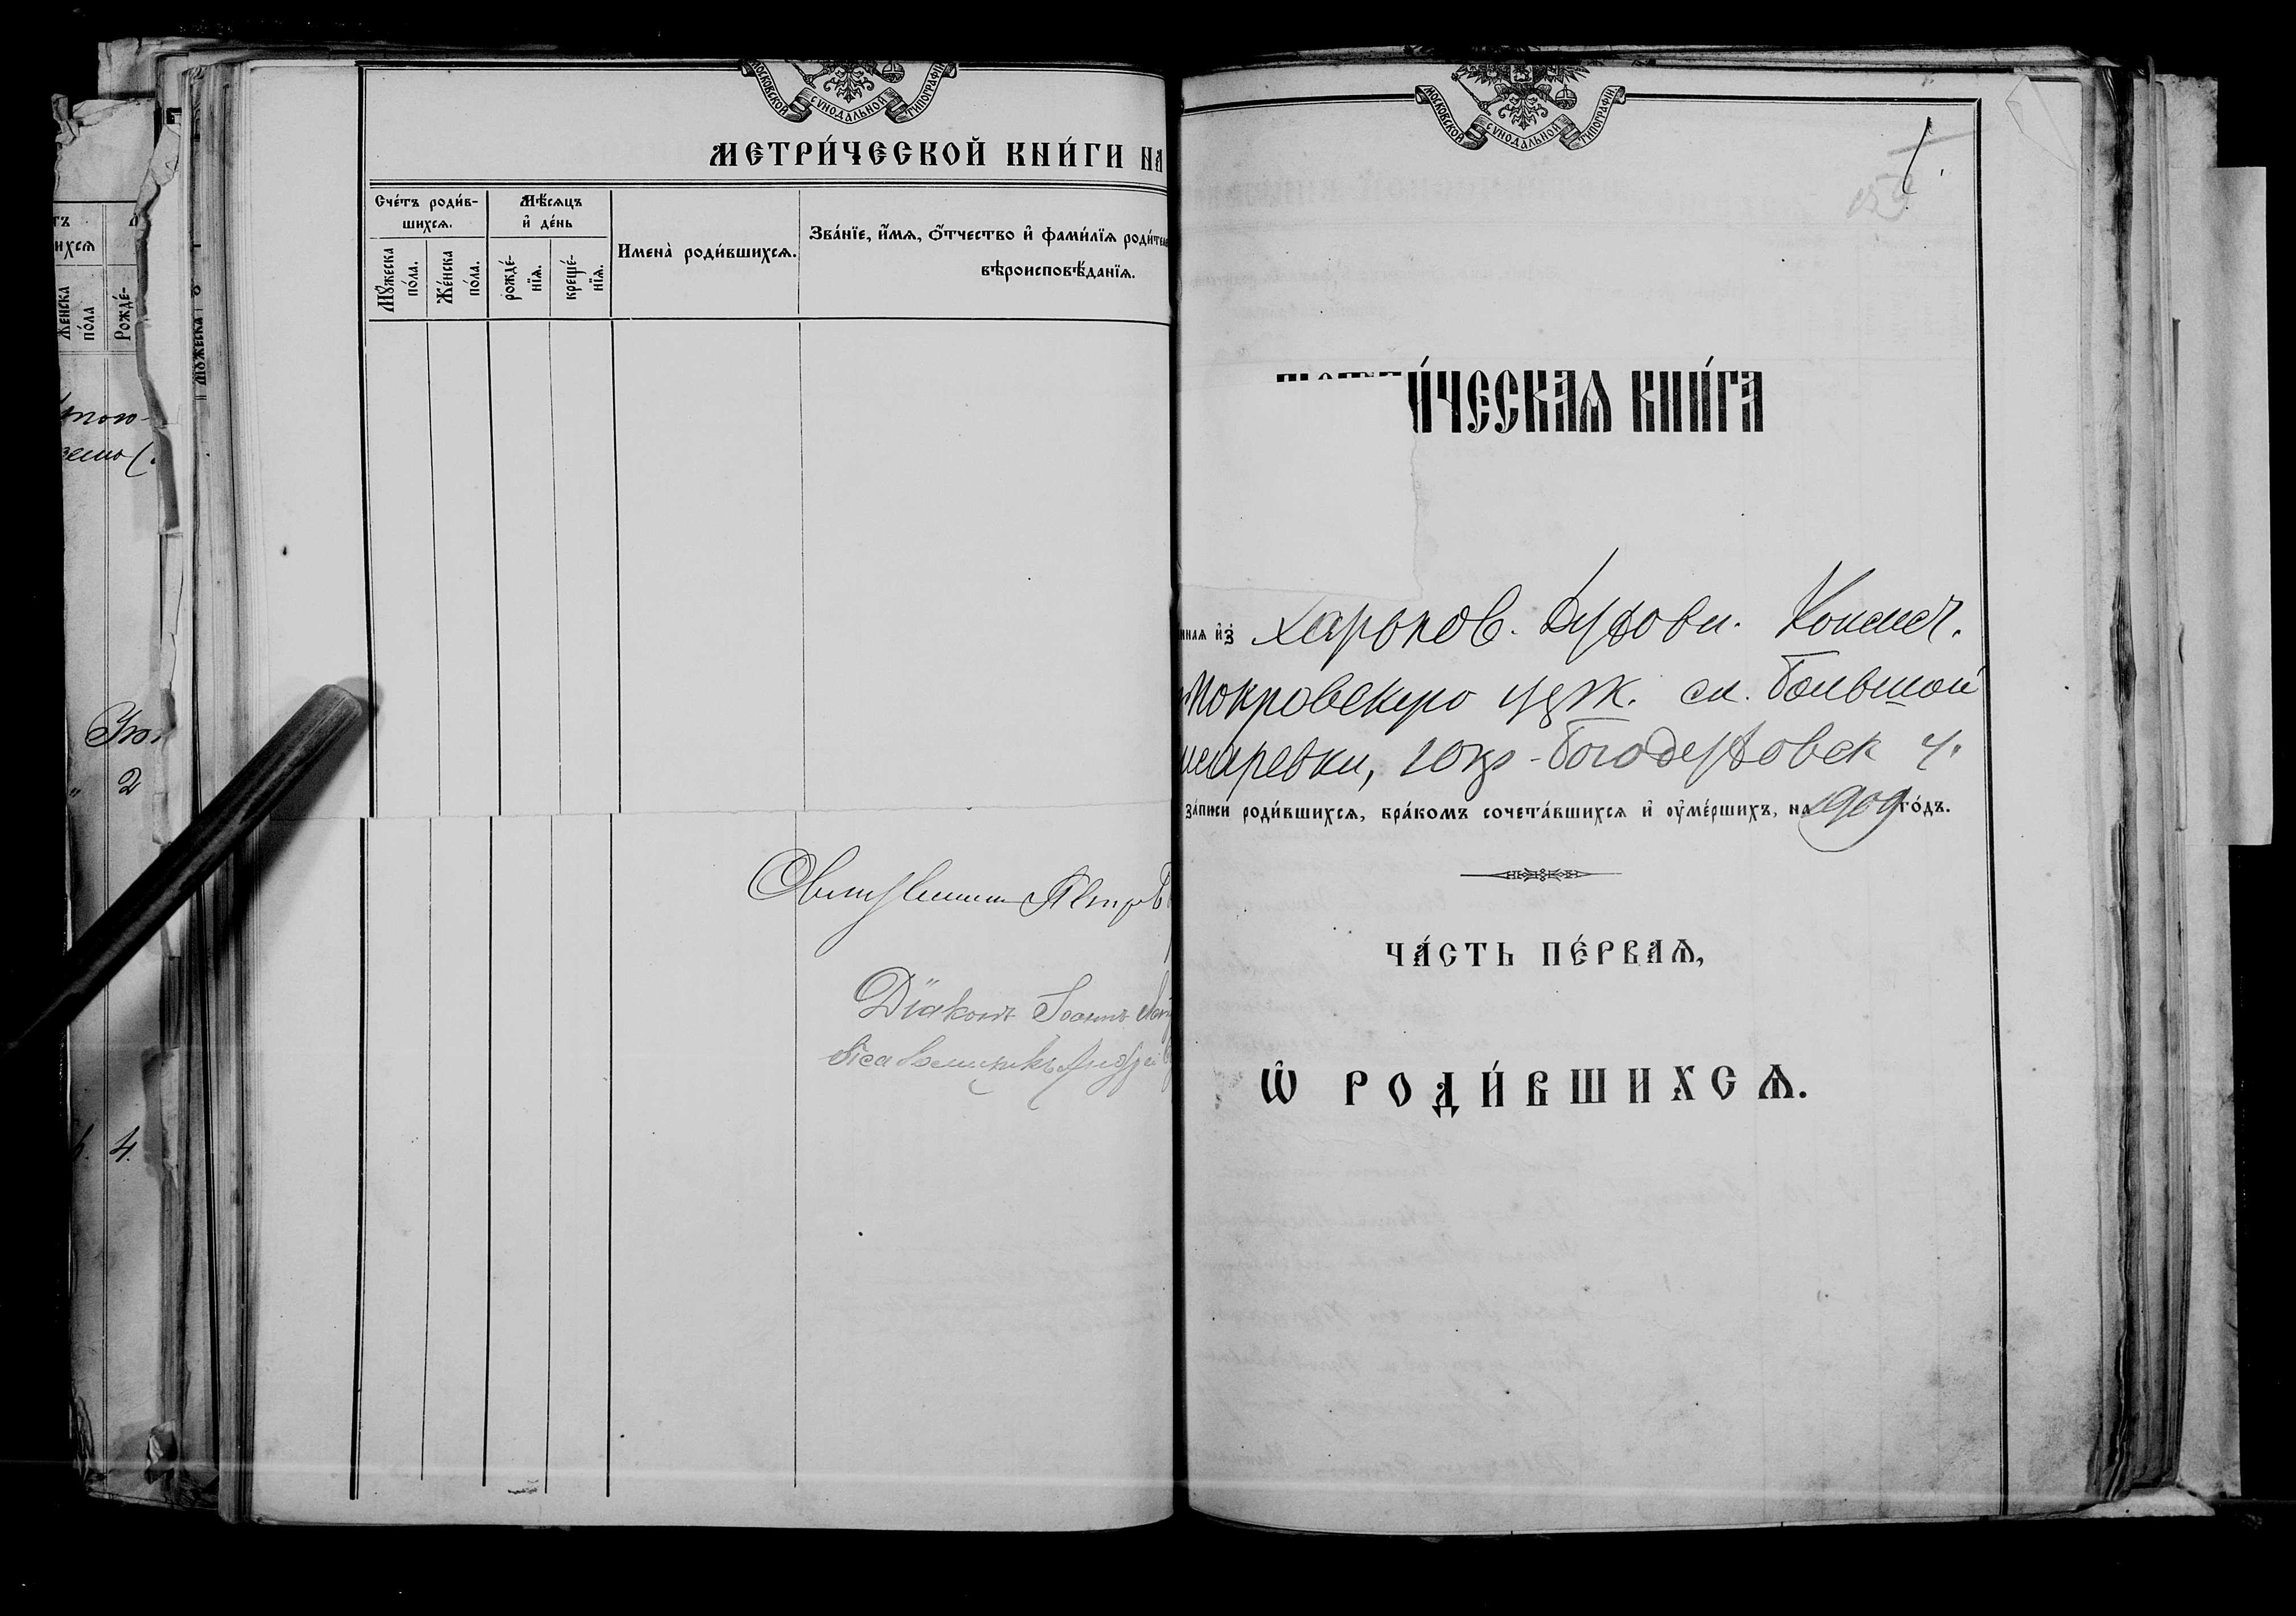 МОСКОВСКОЙ СѴНОДАЛЬНОЙ ТИПОГРАФІИ
МЕТРИ́ЧЕСКОЙ КНИ́ГИ НА
Сче́тъ роди́в-
шихсѧ.
Мѣ́сѧцъ
и҆ де́нь
Имена̀ роди́вшихсѧ.
Зва́нїе, и҆́мѧ, ѻ҆́тчество и҆ фами́лїѧ роди́теле
вѣроисповѣ́данїѧ.
Мꙋ́жеска
по́ла.
Же́нска
по́ла.
рожде́-
нїѧ.
креще́-
нїѧ.
ихсѧ
Же́нска
по́ла
Рожде́-
Мꙋ́жеска
2
4.
Діаконъ Іоаннъ
Псаломщикъ Андрей
МОСКОВСКОЙ СѴНОДАЛЬНОЙ ТИПОГРАФІИ
1.
И́ЧЕСКАѦ КНИ́ГА
ннаѧ и҆з̾ Харьков. Духовн. Консист.
Покровскую сл. Большой
исаревки, Богодуховск у.
за́писи роди́вшихсѧ, бра́комъ сочета́вшихсѧ и҆ ᲂу҆ме́ршихъ, на 1909 го́дъ.
ЧА́СТЬ ПЕ́РВАѦ,
Ѡ҆ РОДИ́ВШИХСѦ.